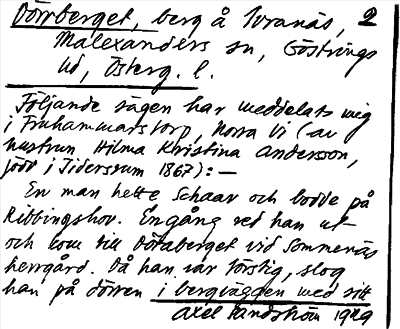 Dörrberget, berg å Tranäs, 2
Malexanders sn, Göstrings
hd, Österg. l.
Följande sägen har meddelats mig
i Frühammarstorp, Norra Vi (av
hustrun Hilma Kristina Andersson,
född i Tidersrum 1867): —
En man hette Schaar och bodde på
Ribbingshov. En gång red han ut
och kom till Dörrberget vid Sommenäs
herrgård. Då han var törstig, slog
han på dörren i bergväggen med sitt
Axel Sandström 1929